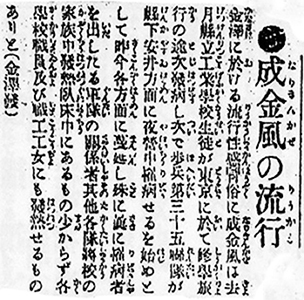 成金風の流行
金澤に於ける流行性感冒俗に成金風は去
月縣立工業學校生徒が東京に於て修學旅
行の途次發病し次で歩兵第三十五聯隊が
縣下安井方面に夜營中罹病せるを始めと
して昨今各方面に蔓延し殊に曩に罹病者
を出したる軍隊の關係者其他各隊將校の
家族中發熱臥床中にあるもの少からず各
學校職員及び職工工女にも發熱せるもの
ありと(金澤發)